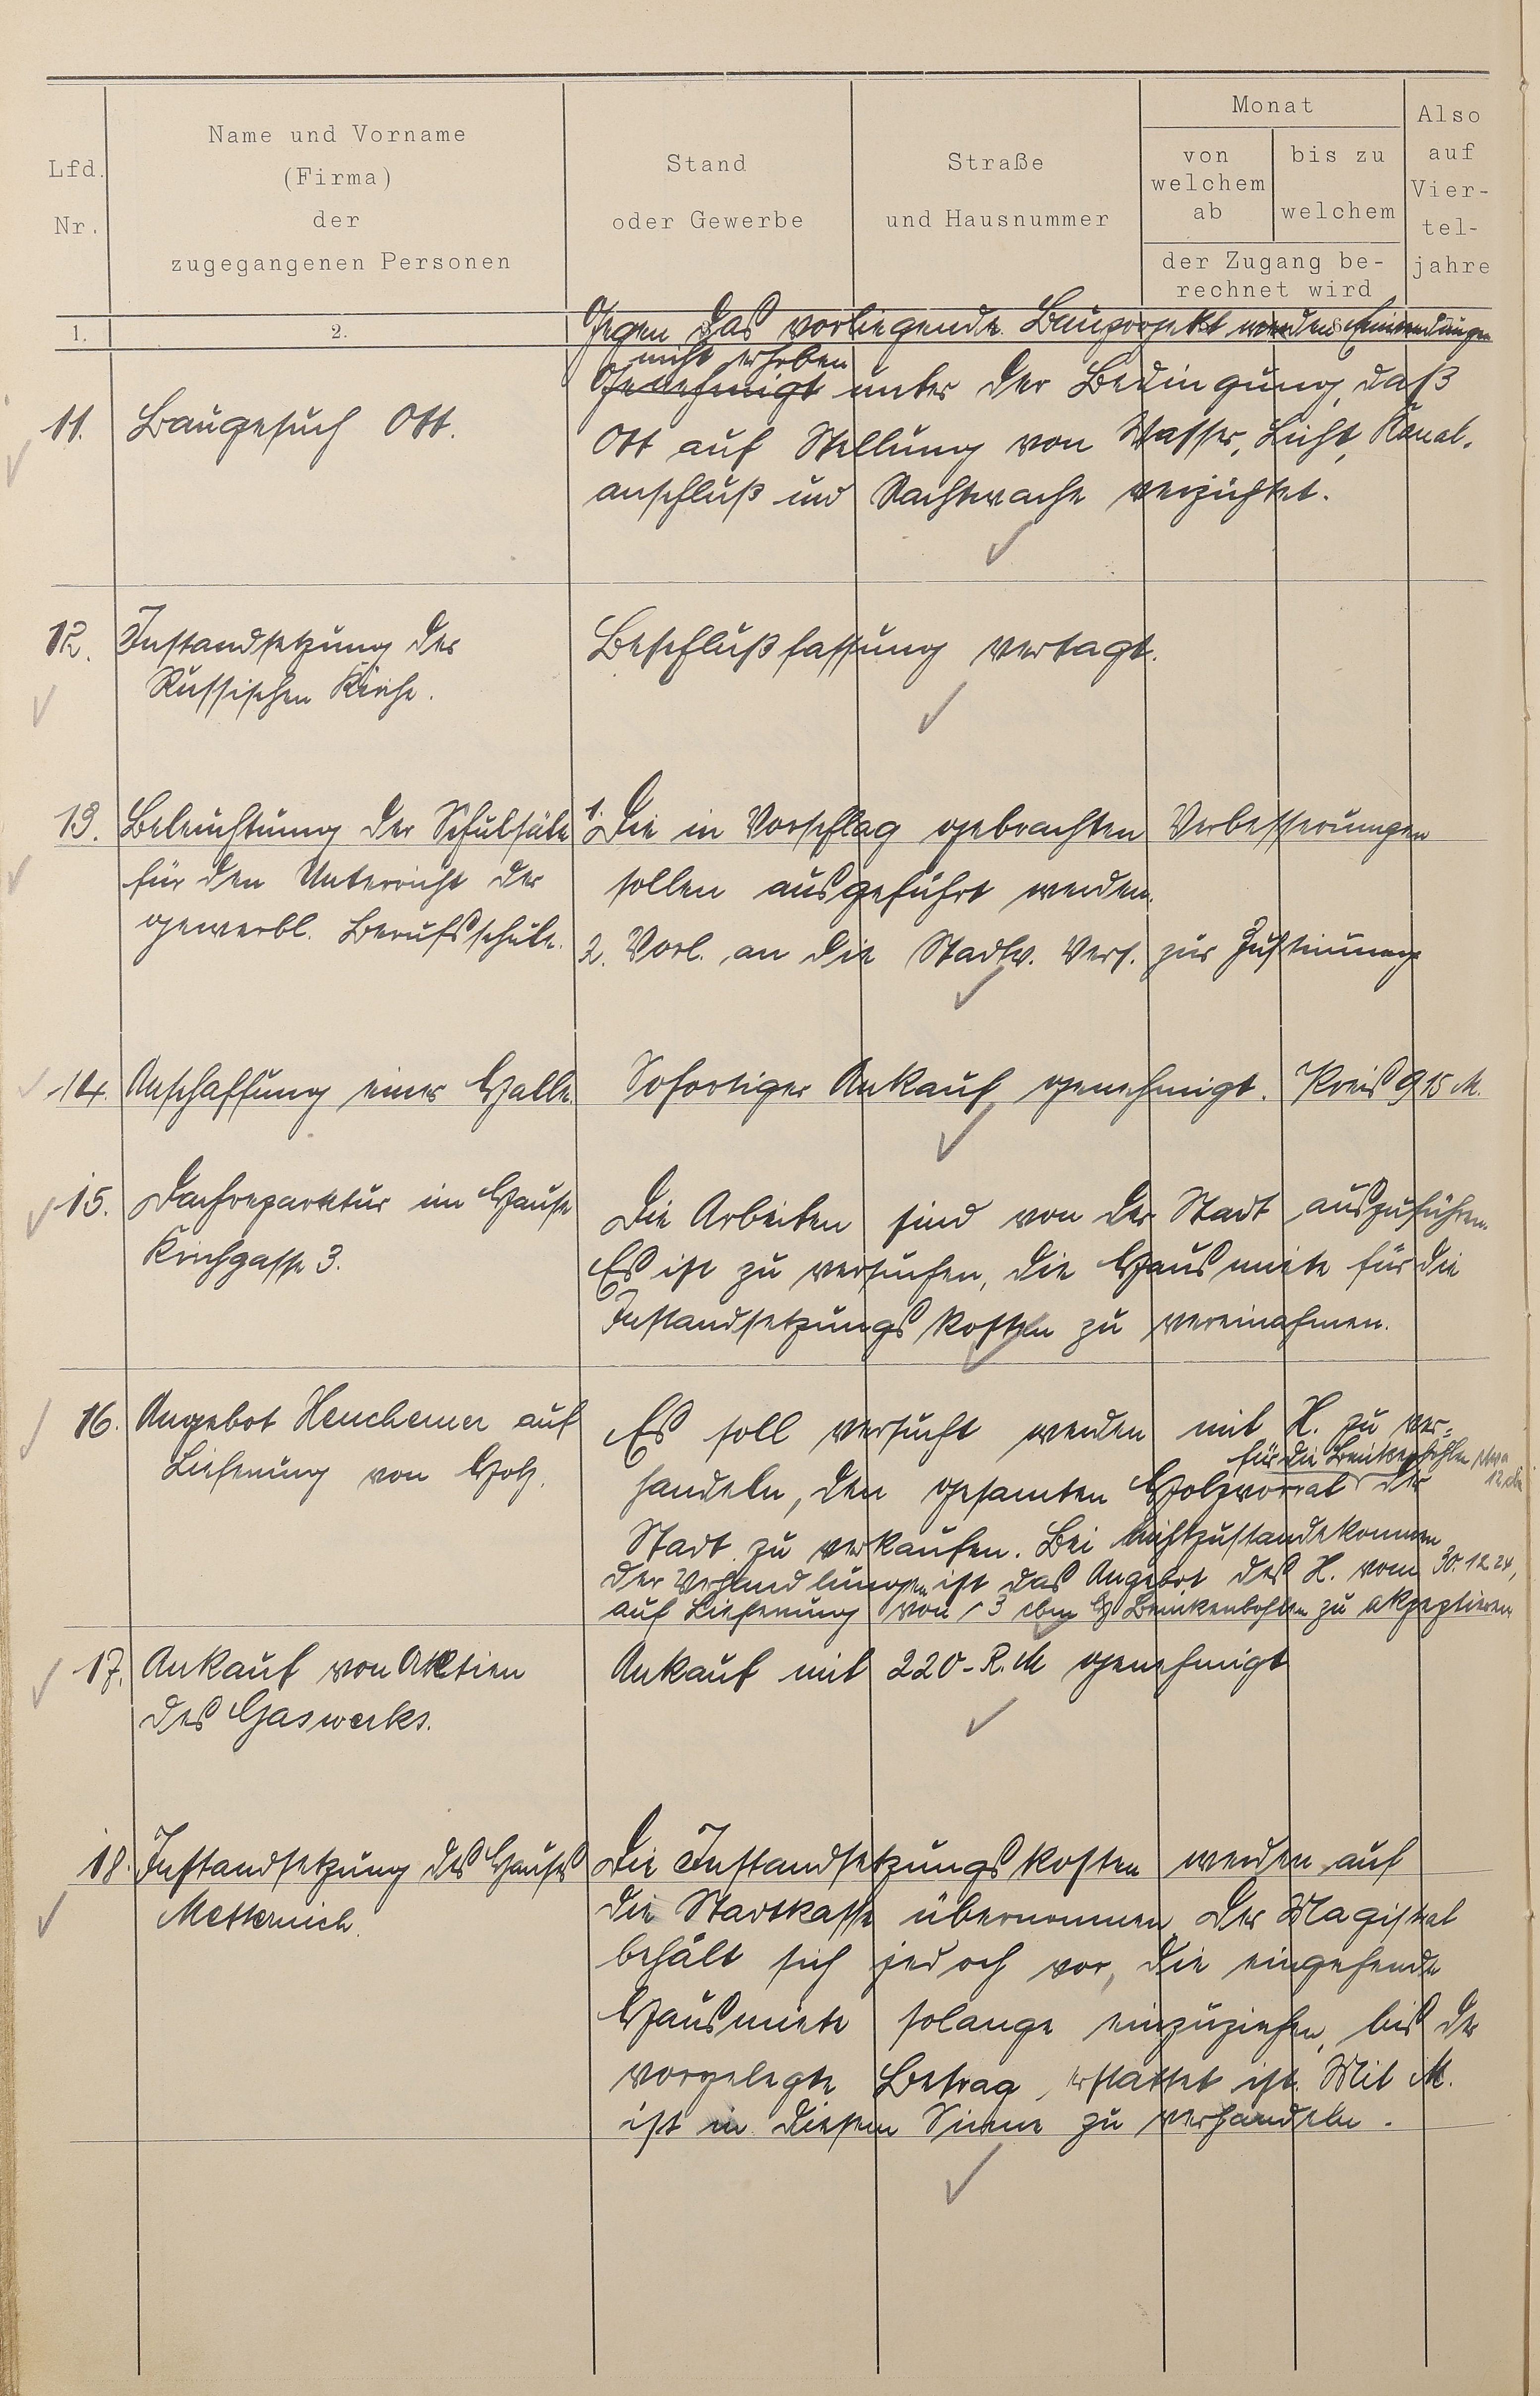 Lfd.
Nr.
Name und Vorname
(Firma)
der
zugegangenen Personen
Stand
oder Gewerbe
Straße
und Hausnummer
Monat
von
welchem
ab
bis zu
welchem
der Zugang be-
rechnet wird
Also
auf
Vier-
tel-
jahre
1.
2.
Gegen das vorliegende Bauprojekt werden Einwendungen
nicht erhoben
11.
Baugesuch Ott.
Genehmigt unter der Bedingung, daß
Ott auf Stellung von Wasser, Licht, Kanal-
anschluß und Nachtwache verzichtet.
12.
Instandsetzung der
Russischen Kirche.
Beschlußfassung vertagt.
13.
Beleuchtung der Schulsäle
für den Unterricht der
gewerbl. Berufsschule.
1. Die in Vorschlag gebrachten Verbesserungen
sollen ausgeführt werden.
2. Vorl. an die Stadtv. Vers. zur Zustimmung
14.
Anschaffung einer Walle.
Sofortiger Ankauf genehmigt. Preis 915 M.
15.
Dachreparatur im Hause
Kirchgasse 3.
Die Arbeiten sind von der Stadt auszuführen.
Es ist zu versuchen, die Hausmiete für die
Instandsetzungskosten zu vereinahmen.
16.
Angebot Henchemer auf
Lieferung von Holz.
Es soll versucht werden mit H. zu ver-
für die etwa
12 cbm
handeln, den gesamten Holzvorrat der
Stadt zu verkaufen. Bei Nichtzustandekommen
der Verhandlungen ist das Angebot des H. vom 30.12.24,
auf Lieferung von 3 cbm Brückenbohlen zu akzeptieren
17.
Ankauf von Aktien
des Gaswerks.
Ankauf mit 220.- R.M genehmigt
18.
Instandsetzung des Hauses
Metternich.
Die Instandsetzungskosten werden auf
die Stadtkasse übernommen. Der Magistrat
behält sich jedoch vor, die eingehende
Hausmiete solange einzuziehen, bis der
vorgelegte Betrag erstattet ist. Mit M.
ist in diesem Sinne zu verhandeln.